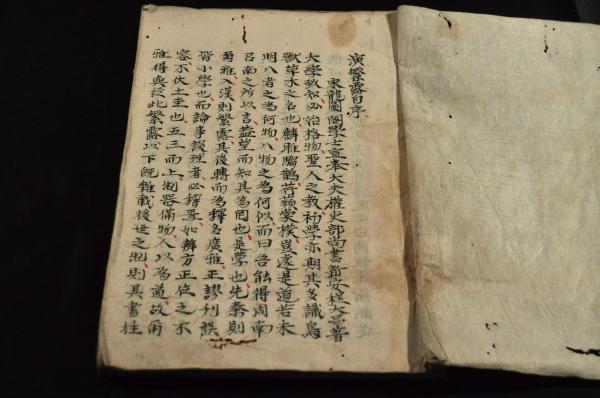 演繁露自序
宋龍圖閣學士宣奉大夫權吏部尚書新安程大昌著
大學致知必始格物聖人之教初學亦期其多識鳥
獸草木之名也麟雎騶鵲荇蘋蒙樸豈遽是道若未
明八者之為何物八物之為何似而曰吾能得周南
召南之所以言蓋望而知其為罔也是學也先秦則
爾雅入漢則繁露其後轉而為釋名廣雅正謬刊誤
皆小學也而論事談理者必稽焉如辨方正位之不
容不伏土圭也五三而上制器備物人以為道故爾
雅得與於此繁露以下既雜載後世之制則其書往